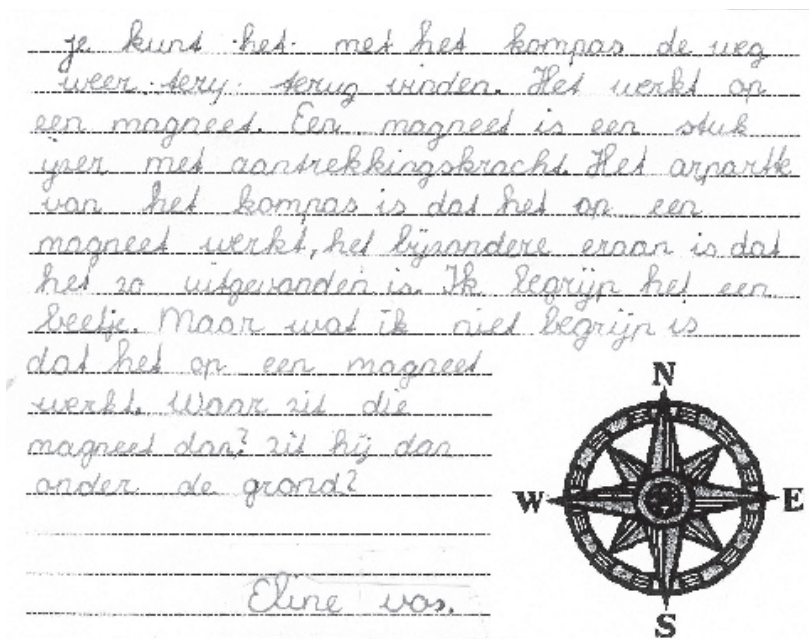 je kunt het met het kompas de weg
weer tery terug vinden. Het werkt op
een magneet. Een magneet is een stuk
ijzer met aantrekkingskracht. Het arpartte
van het kompas is dat het op een
magneet werkt, het bijzondere eraan is dat
het zo uitgevonden is. Ik begrijp het een
beetje. Maar wat ik niet begrijp is
dat het op een magneet
werkt. Waar zit die
magneet dan? zit hij dan
onder de grond?
N
W E
S
Eline vos.